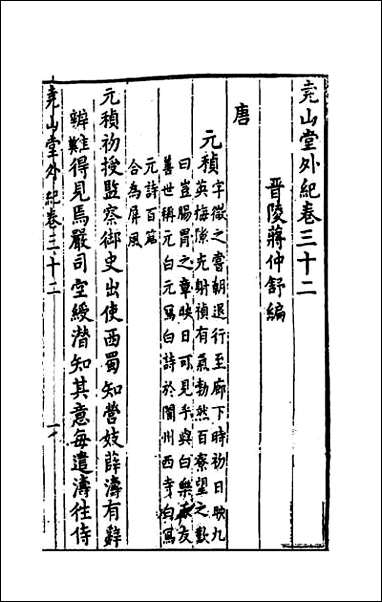 堯山堂外紀卷三十二
晉陵蔣仲舒編
唐
元稹
字微之嘗朝退行至廊下時初日映九
英梅隙光射稹有氣勃然百寮望之歎
曰豈腸胃之章映日可見乎與白樂天友
善世稱元白元寫白詩於閬州西寺白寫
元詩百篇
合為屏風
元稹初授監察御史出使西蜀知營妓薛濤有辭
辨難得見焉嚴司空綬潛知其意每遣濤往侍
堯山堂外紀卷三十二
一